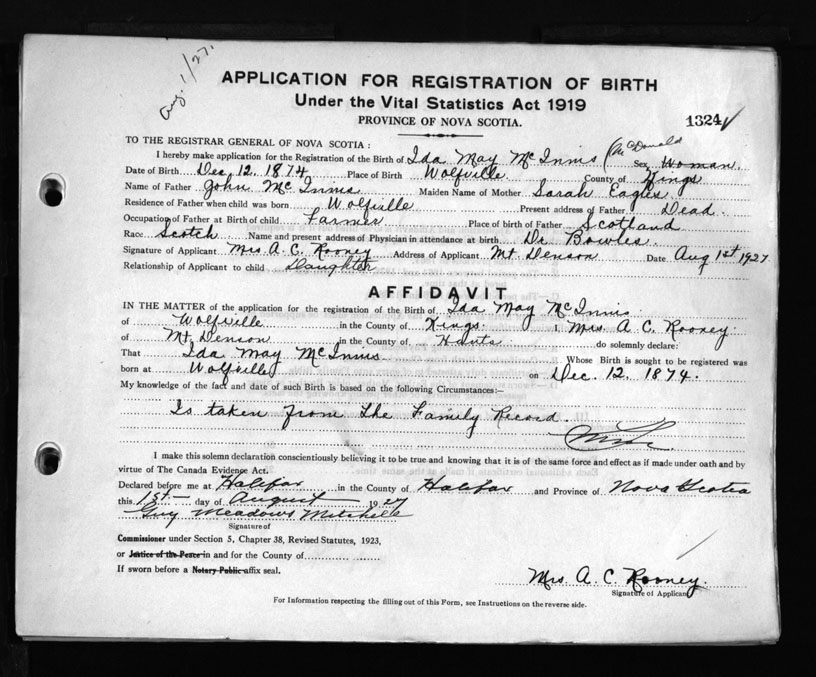 Aug. 1/27.
APPLICATION FOR REGISTRATION OF BIRTH
Under the Vital Statistics Act 1919
PROVINCE OF NOVA SCOTIA.
1324
TO THE REGISTRAR GENERAL OF NOVA SCOTIA:
(McDonald
I hereby make application for the Registration of the Birth of Ida May McInnis Sex Woman.
Date of Birth Dec. 12. 1874 Place of Birth Wolfville County of Kings
Name of Father John McInnis Maiden Name of Mother Sarah Eagles
Residence of Father when child was born Wolfville Present address of Father Dead.
Occupation of Father at Birth of child Farmer Place of birth of Father Scotland
Race Scotch Name and present address of Physician in attendance at birth Dr Bowles.
Signature of Applicant Mrs A. C. Rooney Address of Applicant Mt Denson Date Aug 1st 1927
Relationship of Applicant to child Daughter
AFFIDAVIT
IN THE MATTER of the application for the registration of the Birth of Ida May McInnis
of Wolfville in the County of Kings. I Mrs. A C. Rooney.
of Mt, Denson in the County of Hants do solemnly declare:
That Ida May McInnis Whose Birth is sought to be registered was
born at Wolfville on Dec. 12. 1874.
My knowledge of the fact and date of such Birth is based on the following Circumstances:—
Is taken from the Family Record.
I make this solemn declaration conscientiously believing it to be true and knowing that it is of the same force and effect as if made under oath and by
virtue of The Canada Evidence Act.
Declared before me at Halifax in the County of Halifax and Province of Nova Scotia
this 1st day of August 1927
Guy Meadows Mitchell
Signature of
Commissioner under Section 5, Chapter 38, Revised Statutes, 1923,
or Justice of the Peace in and for the County of
If sworn before a Notary Public affix seal.
Mrs. A. C. Rooney.
Signature of Applicant
For Information respecting the filling out of this Form, see Instructions on the reverse side.